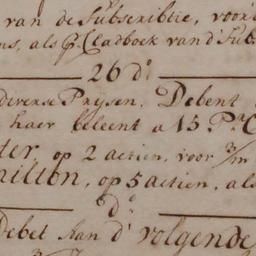 van de Subscribtie, voor
ns, als Gr. Cladboek van d' Sub
26 d.°
diverse Prysen. Debent
haer beleent a 15 P.r C
ter op 2 actien, voor 3/m
milton, op 5 actien, als
d.°
Debet Aan d' volgende